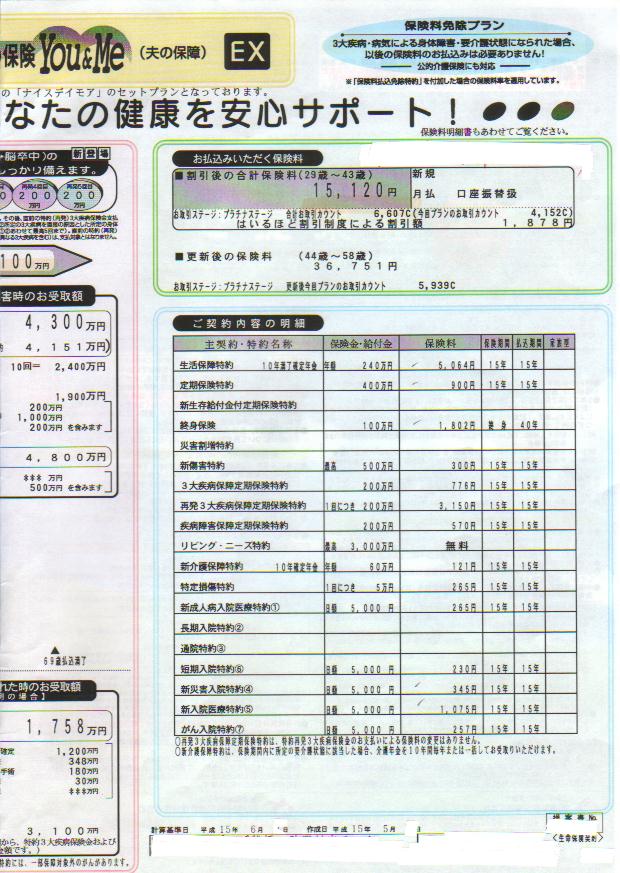 保険 You&Me (夫の保障) EX
保険料免除プラン
3大疾病・病気による身体障害・要介護状態になられた場合、
以後の保険料のお払込みは必要ありません!
公的介護保険にも対応
※「保険料払込免除特約」を付加した場合の保険料率を適用しています。
の「ナイスデイモア」のセットプランとなっております。
なたの健康を安心サポート!
保険料明細書もあわせてご覧ください。
脳卒中)の 新登場
しっかり備えます。
再発4回目 再発5回目
200 200
万円 万円
100万円
害時のお受取額
4,300万円
4,151万円)
10回= 2,400万円
1,900万円
200万円
1,000万円
200万円 を含みます
4,800万円
*** 万円
500万円 を含みます
▲
69歳払込満了
れた時のお受取額
の場合】
1,758万円
確定 1,200万円
348万円
手術 180万円
30万円
***万円
3,100万円
から、特約3大疾病保険金および
金額です。)
特約には、一部保障対象外のがんがあります。
お払込みいただく保険料
■割引後の合計保険料(29歳〜43歳) 新規
15,120円 月払 口座振替扱
お取引ステージ:プラチナステージ 合計お取引カウント 6,607C(今回プランのお取引カウント 4,152C)
はいるほど割引制度による割引額 1,878円
■更新後の保険料 (44歳〜58歳)
36,751円
お取引ステージ:プラチナステージ 更新後今回プランのお取引カウント 5,939C
ご契約内容の明細
主契約・特約名称 保険金・給付金 保険料 保険期間 払込期間 家族型
生活保障特約 10年満了確定年金 年額 240万円 5,064円 15年 15年
定期保険特約 400万円 900円 15年 15年
新生存給付金付定期保険特約
終身保険 100万円 1,802円 終身 40年
災害割増特約
新傷害特約 最高 500万円 300円 15年 15年
3大疾病保障定期保険特約 200万円 776円 15年 15年
再発3大疾病保障定期保険特約 1回につき 200万円 3,150円 15年 15年
疾病障害保障定期保険特約 200万円 570円 15年 15年
リビング・ニーズ特約 最高 3,000万円 無料
新介護保障特約 10年確定年金 年額 60万円 121円 15年 15年
特定損傷特約 1回につき 5万円 265円 15年 15年
新成人病入院医療特約① 日額 5,000 円 265円 15年 15年
長期入院特約②
通院特約③
短期入院特約⑥ 日額 5,000 円 230円 15年 15年
新災害入院特約④ 日額 5,000 円 345円 15年 15年
新入院医療特約⑤ 日額 5,000 円 1,075円 15年 15年
がん入院特約⑦ 日額 5,000 円 257円 15年 15年
○再発3大疾病保障定期保険特約は、特約再発3大疾病保険金のお支払いによる保険料の変更はありません。
○新介護保障特約は、保険期間内に所定の要介護状態に該当した場合、介護年金を10年間毎年または一括してお受取りいただけます。
計算基準日 平成15年 6月 日 作成日 平成15年 5月 日
提案書No.
<生命保険契約>